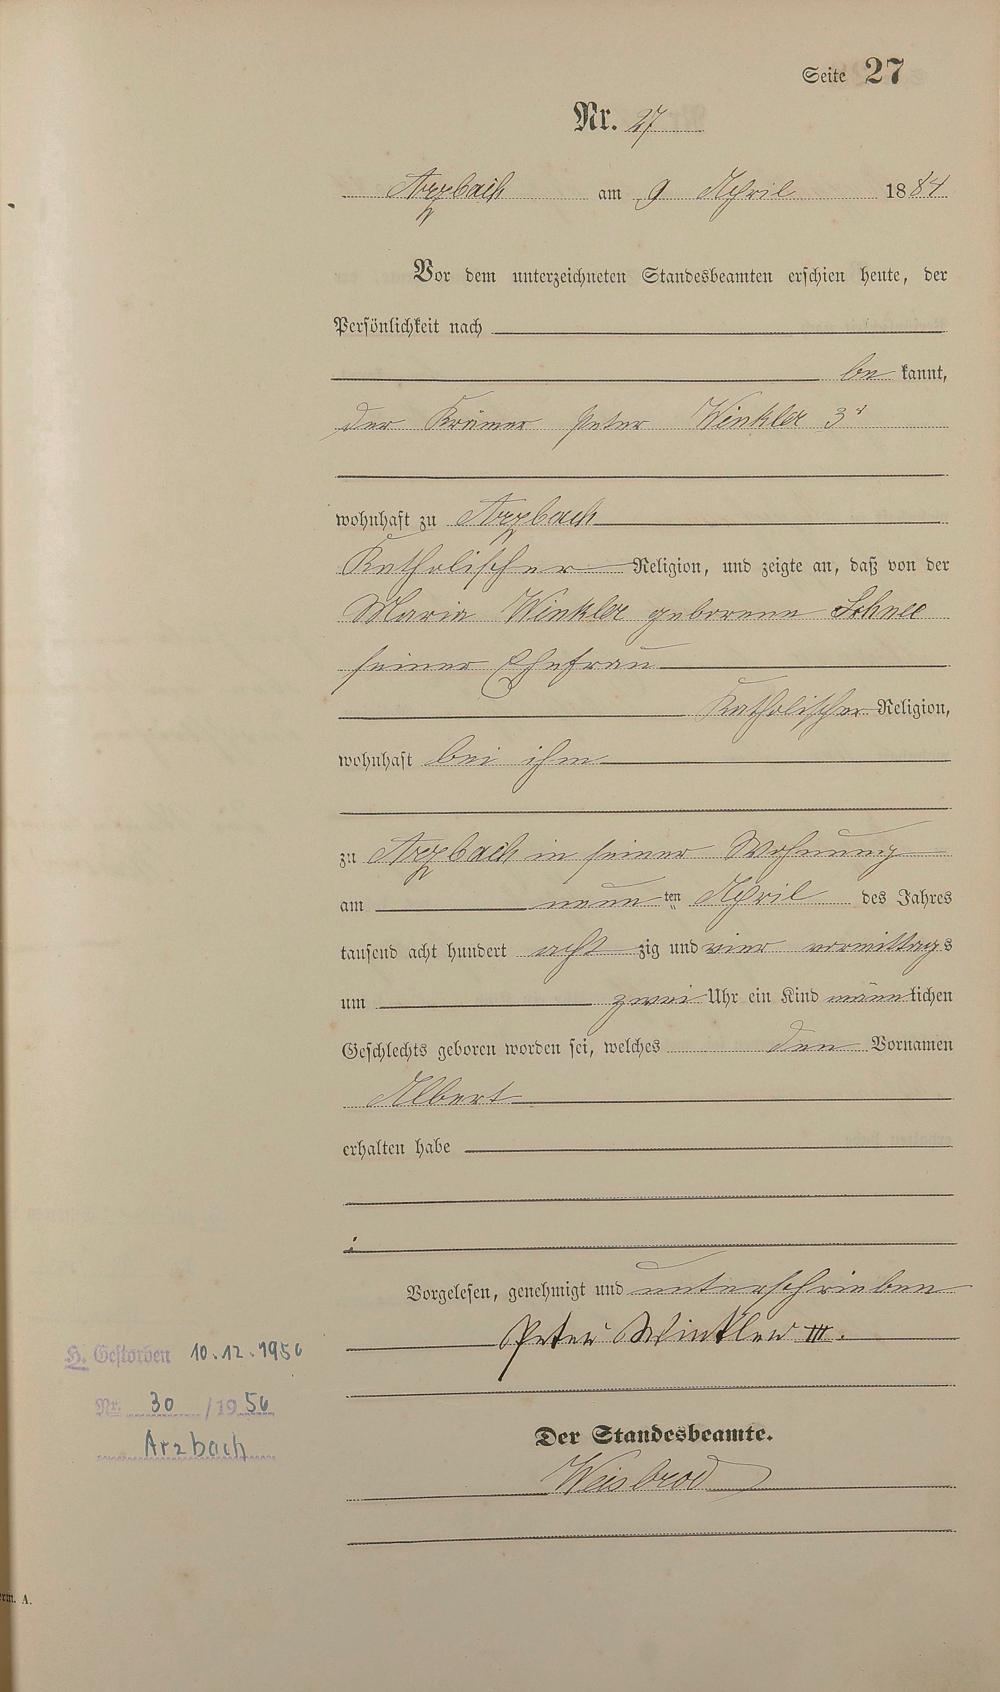 Seite 27
Nr. 27
Arzbach am 9 April 1884
Vor dem unterzeichneten Standesbeamten erschien heute, der
Persönlichkeit nach
be kannt,
der Krämer Peter Winkler 3r
wohnhaft zu Arzbach
Katholischer Religion, und zeigte an, daß von der
Maria Winkler geborene Schnee
seiner Ehefrau
Katholischer Religion,
wohnhaft bei ihm
zu Arzbach in seiner Wohnung
am neun ten April des Jahres
tausend acht hundert acht zig und vier vormittags
um zwei Uhr ein Kind männlichen
Geschlechts geboren worden sei, welches den Vornamen
Albert
erhalten habe
Vorgelesen, genehmigt und unterschrieben
Peter Winkler III.
H. Gestorben 10.12.1956
Nr. 30 /1956
Arzbach
Der Standesbeamte.
Weisbrod
rm. A.